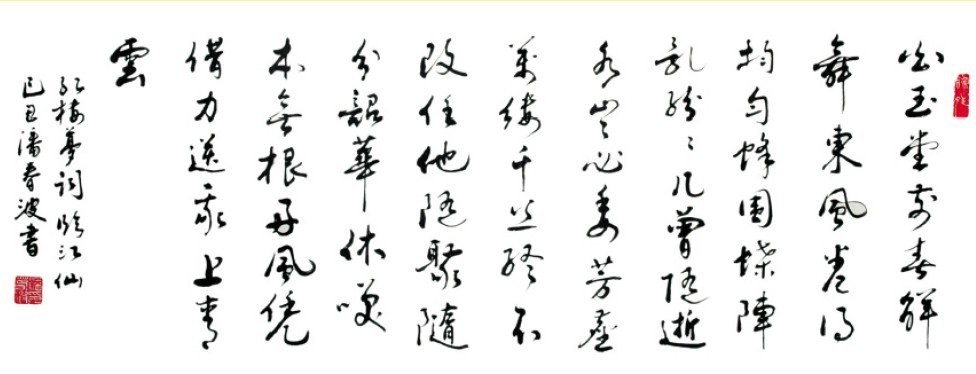 白玉堂前春解
舞東風卷得
均匀蜂圍蝶陣
乱紛〻几曾随逝
水豈必委芳塵
萬縷千丝終不
改任他随聚隨
分韶華休笑
本無根好風凭
借力送我上青
雲
红楼夢词临江仙
己丑潘春波書